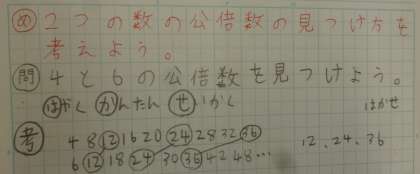 め 2つの数の公倍数の見つけ方を
考えよう。
問 4と6の公倍数を見つけよう。
はやく かんたん せいかく はかせ
考 4 8 12 16 20 24 28 32 36 12、24、36
6 12 18 24 30 36 42 48…